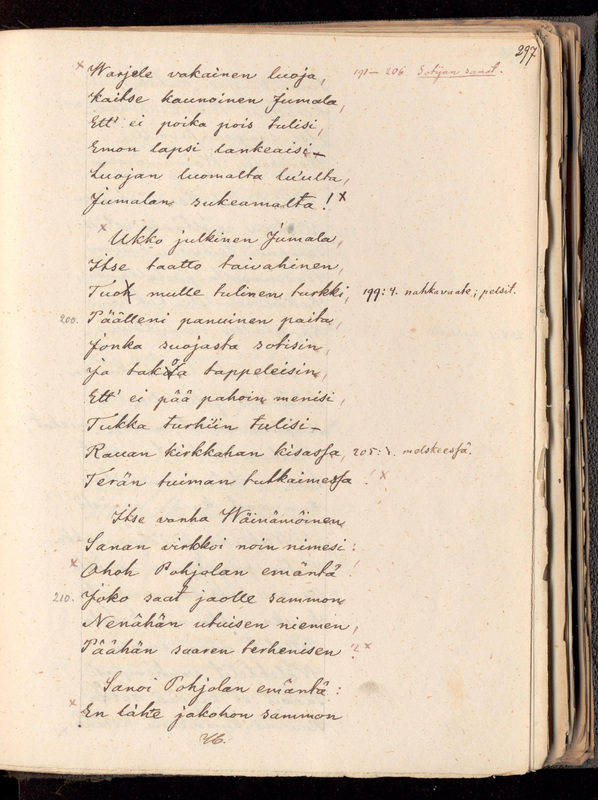 297.
Warjele vakainen luoja, 191–206 Sotijan sanat.
Kaitse kaunoinen Jumala,
Ett' ei poika pois tulisi,
Emon lapsi lankeaisi –
Luojan luomalta lu'ulta,
Jumalan sukeamalta!
Ukko julkinen Jumala,
Itse taatto taivahinen,
Tuo mulle tulinen turkki, 199: 4. nahkavaate; pelsit.
200. Päälleni panuinen paita,
Jonka suojasta sotisin,
Ja takoa tappeleisin,
Ett' ei pää pahoin menisi,
Tukka turhiin tulisi –
Rauan kirkkahan kisassa, 205: molskeessa.
Terän tuiman tutkaimessa!
Itse vanha Wäinämöinen
Sanan virkkoi noin nimesi:
Ohoh Pohjolan emäntä!
210. Joko saat jaolle sammon
Nenähän utuisen niemen,
Päähän saaren terhenisen?
Sanoi Pohjolan emäntä:
En lähe jakohon sammon